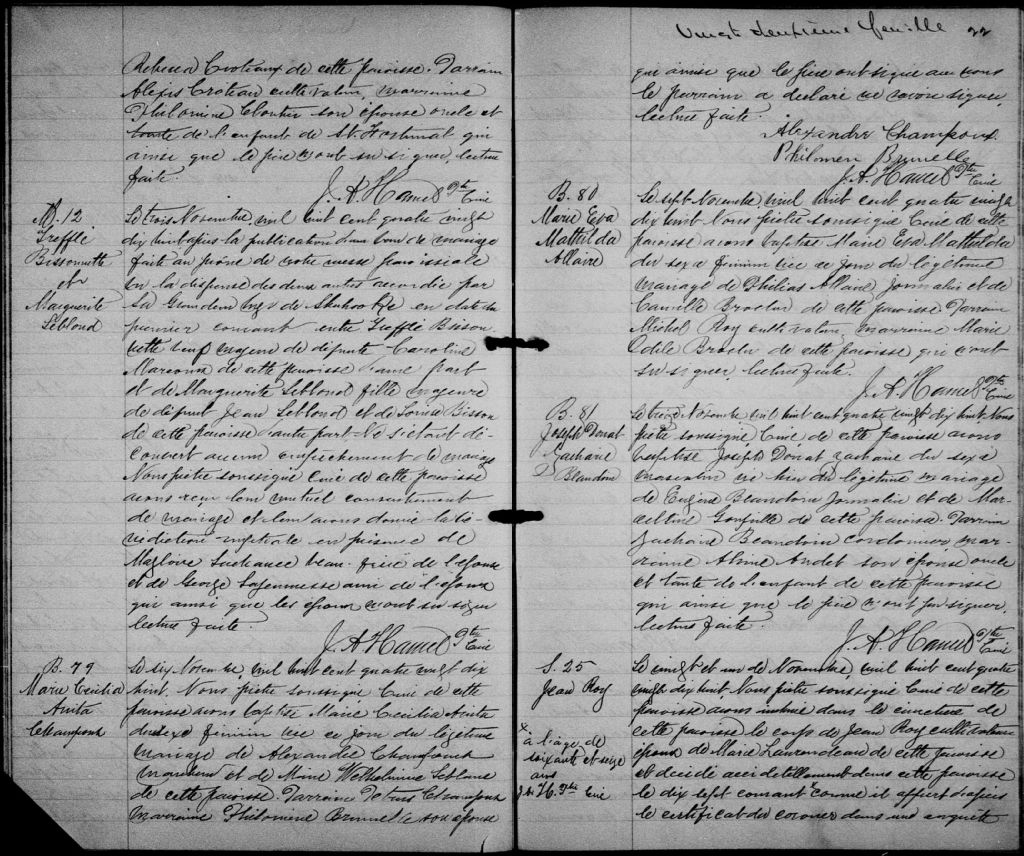 Rebecca Croteaux de cette paroisse. Parrain
Alexis Croteau cultivateur, marraine
Philomène Cloutier son épouse oncle et
tante de l'enfant de St Fortunat qui
ainsi que le père n'ont su signer lecture
faite.
J. A. Hamel Ptre Curé
M. 12
Trefflé
Bissonnette
et
Marguerite
Leblond
Le trois Novembre mil huit cent quatre vingt
dix huit après la publication d'un banc de mariage
faite au prône de notre messe paroissiale
vu la dispense des deux autres accordée par
Sa Grandeur Mgr de Sherbrooke en date du
premier courant entre Treffle Bisson
nette veuf majeur de défunte Caroline
Marcoux de cette paroisse d'une part
et de Marguerite Leblond fille majeure
de défunt Jean Leblond et de Louise Bisson
de cette paroisse d'autre part. Ne s'étant dé-
couvert aucun empêchement de mariage
Nous prêtre soussigné Curé de cette paroisse
avons reçu leur mutuel consentement
de mariage et leur avons donné la bé-
nédiction nuptiale en présence de
Magloire Lachance beau-frère de l'époux
et de George Lajeunesse ami de l'époux
qui ainsi que les époux n'ont su signer
lecture faite.
J. A. Hamel Ptre Curé
B. 79
Marie Cecilia
Anita
Champoux
Le six Novembre, mil huit cent quatre vingt dix
huit. Nous prêtre soussigné Curé de cette
paroisse avons baptisé Marie Cecilia Anita
du sexe féminin née ce jour du légitime
mariage de Alexandre Champoux
et de Marie Wilhelmine Leblanc
de cette paroisse. Parrain Petrus Champoux
marraine Philomène Brunelle son épouse
Vingt deuxième feuille 22
qui ainsi que le père ont signé avec nous
le parrain a déclaré ne savoir signer
lecture faite.
Alexandre Champoux
Philomen Brunelle
J. A. Hamel Ptre Curé
B. 80
Marie Eva
Mathilda
Allaire
Le sept Novembre mil huit cent quatre vingt
dix huit Nous prêtre soussigné Curé de cette
paroisse avons baptisé Marie Eva Mathilda
du sexe féminin née ce jour du légitime
mariage de Philias Allaire Journalier et de
Camille Brochu de cette paroisse Parrain
Michel Roy cultivateur, marraine Marie
Odile Brochu de cette paroisse qui n'ont
su signer, lecture faite.
J. A. Hamel Ptre Curé
B. 81
Joseph Donat
Zacharie
Beaudoin
Le treize Novembre mil huit cent quatre vingt dix huit. Nous
prêtre soussigné Curé de cette paroisse avons
baptisé Joseph Donat Zacharie du sexe
masculin né hier du légitime mariage
de Eugène Beaudoin Journalier et de Mar-
celline de cette paroisse. Parrain
Zacharie Beaudoin cordonnier mar-
raine Aline Audet son épouse oncle
et tante de l'enfant de cette paroisse
qui ainsi que le père n'ont su signer,
lecture faite.
J. A. Hamel Ptre Curé
S. 25
Jean Roy
x
à l'âge de
soixante et seize
ans
J. A. H. Ptre Curé
Le vingt et un de Novembre, mil huit cent quatre
vingt dix huit Nous prêtre soussigné Curé de cette
paroisse avons inhumé dans le cimetière de
cette paroisse le corps de Jean Roy cultivateur
époux de Marie Laurendeau de cette paroisse
et décédé accidentellement dans cette paroisse
le dix sept courant comme il appert d'après
le certificat du coroner dans une enquête